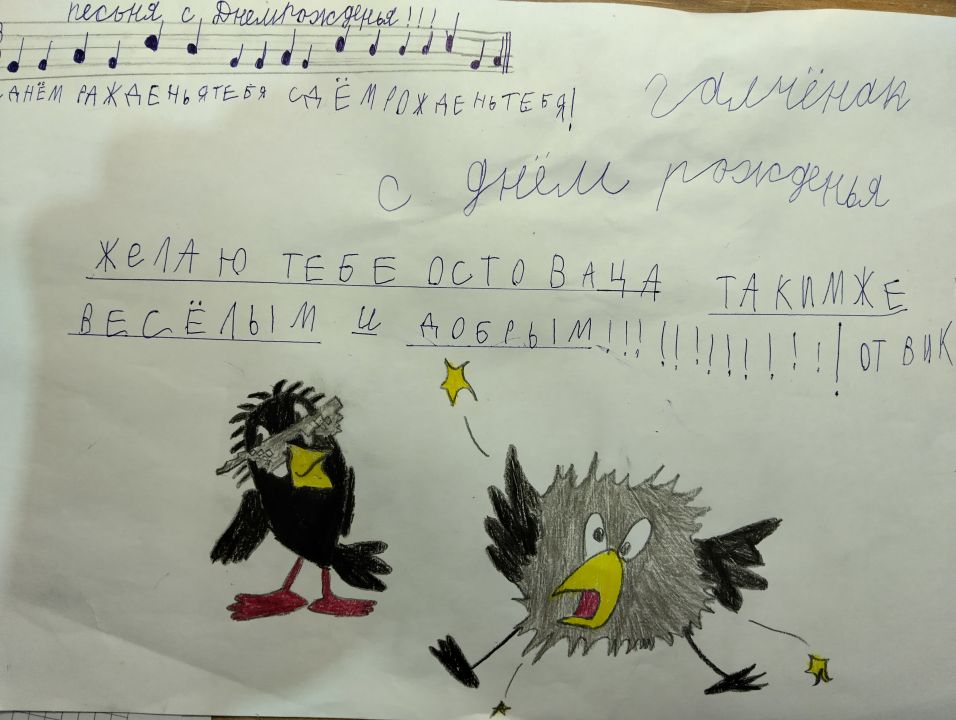 песьня с Днемрожденья!!!
С ДНЁМ РАЖДЕНЬЯТЕБЯ СДЁМРОЖДЕНЬТЕБЯ!
галчёнак
с днём рожденья
ЖЕЛАЮ ТЕБЕ ОСТОВАЦА ТАКИМЖЕ
ВЕСЁЛЫМ И ДОБРЫМ!!!!!!!!!!!!!! ОТ ВИК